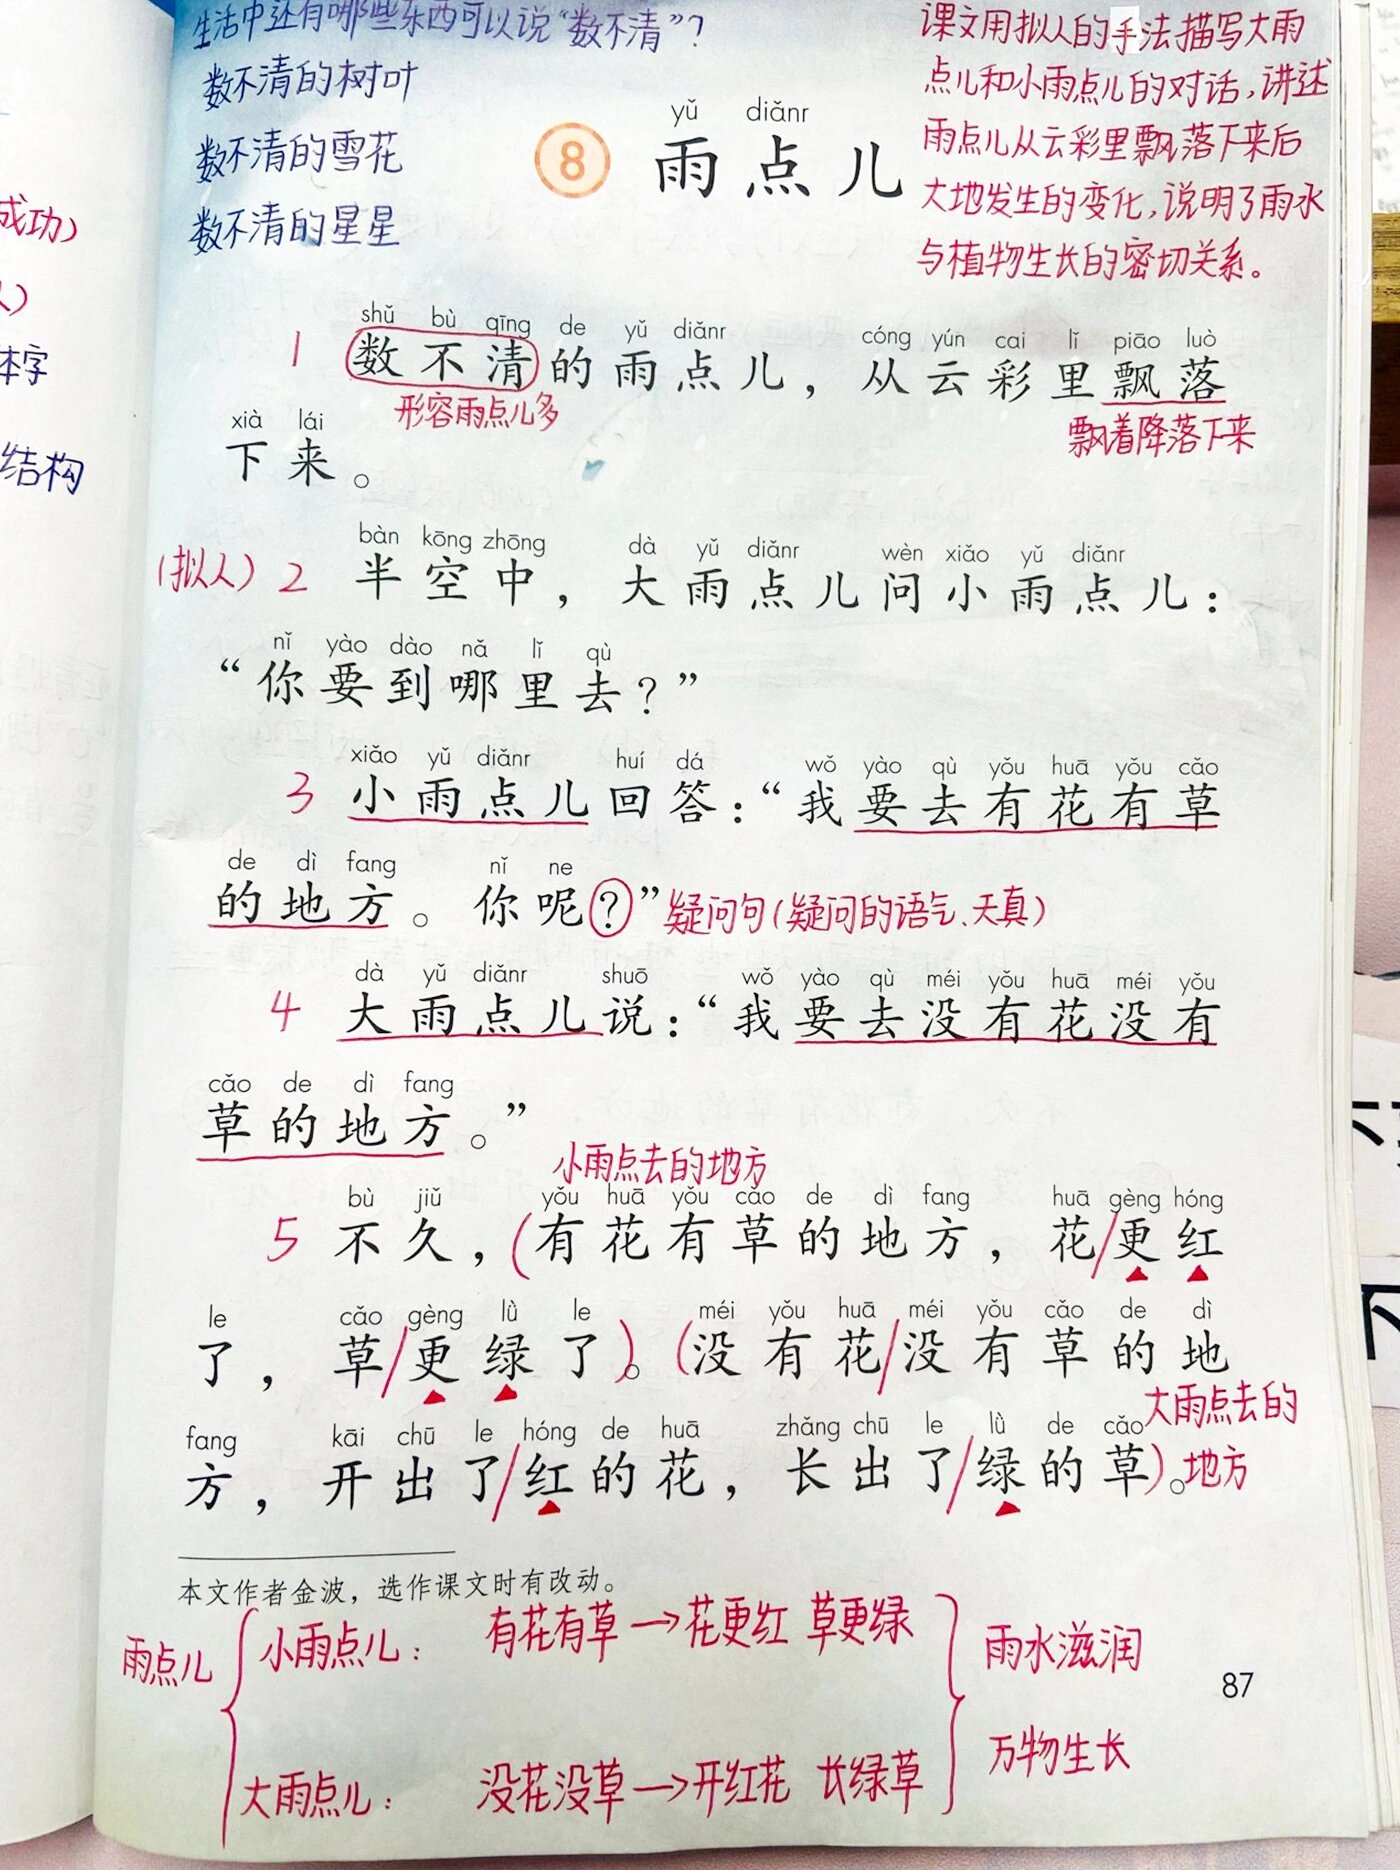 生活中还有哪些东西可以说“数不清”？
数不清的树叶
数不清的雪花
数不清的星星
课文用拟人的手法描写大雨
点儿和小雨点儿的对话，讲述
雨点儿从云彩里飘落下来后
大地发生的变化，说明了雨水
与植物生长的密切关系。
成功）
人）
体字
结构
yǔ diǎnr
8 雨点儿
shǔ bù qīng de yǔ diǎnr cóng yún cai lǐ piāo luò
1 数不清的雨点儿，从云彩里飘落
形容雨点儿多
飘着降落下来
xià lái
下来。
bàn kōng zhōng dà yǔ diǎnr wèn xiǎo yǔ diǎnr
（拟人）2 半空中，大雨点儿问小雨点儿：
nǐ yào dào nǎ lǐ qù
“你要到哪里去？”
xiǎo yǔ diǎnr huí dá wǒ yào qù yǒu huā yǒu cǎo
3 小雨点儿回答：“我要去有花有草
de dì fang nǐ ne
的地方。你呢？”疑问句（疑问的语气、天真）
dà yǔ diǎnr shuō wǒ yào qù méi yǒu huā méi yǒu
4 大雨点儿说：“我要去没有花没有
cǎo de dì fang
草的地方。”
小雨点去的地方
bù jiǔ yǒu huā yǒu cǎo de dì fang huā gèng hóng
5 不久，（有花有草的地方，花/更红
le cǎo gèng lǜ le méi yǒu huā méi yǒu cǎo de dì
了，草/更绿了）。（没有花/没有草的地
大雨点去的
地方
fang kāi chū le hóng de huā zhǎng chū le lǜ de cǎo
方，开出了/红的花，长出了/绿的草）。
本文作者金波，选作课文时有改动。
雨点儿
小雨点儿： 有花有草→花更红 草更绿
大雨点儿： 没花没草→开红花 长绿草
雨水滋润
万物生长
87